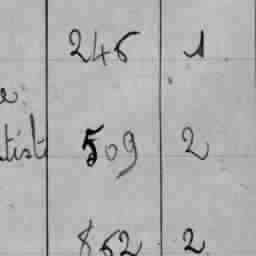 246 1
509 2
862 2